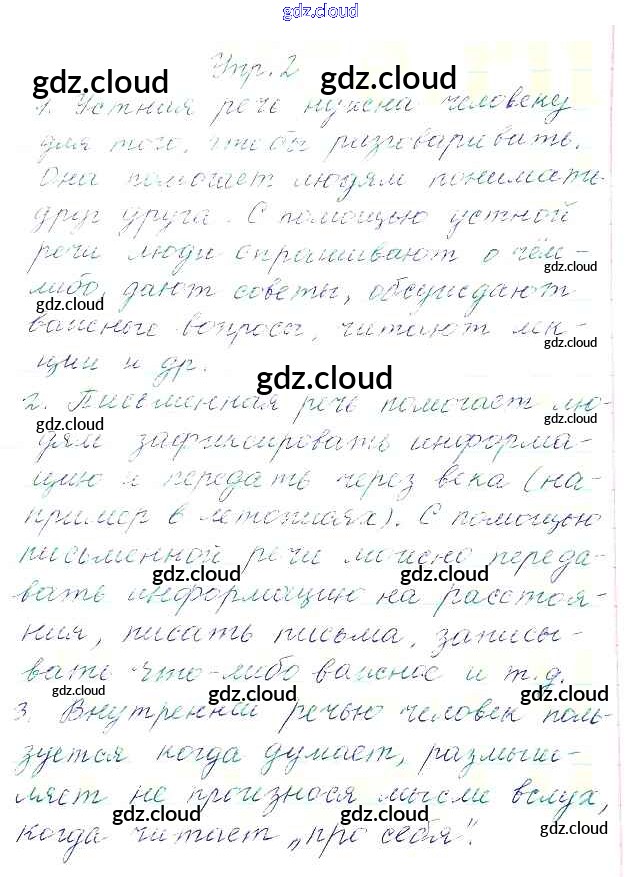 gdz.cloud
Упр. 2
gdz.cloud gdz.cloud
1. Устная речь нужна человеку
для того, чтобы разговаривать.
Она помогает людям понимать
gdz.cloud
друг друга. С помощью устной
речи люди спрашивают о чём-
gdz.cloud
либо, дают советы, обсуждают
gdz.cloud
важные вопросы, читают лек-
gdz.cloud
ции и др.
gdz.cloud
2. Письменная речь помогает лю-
gdz.cloud gdz.cloud
дям зафиксировать информа-
цию и передать через века (на-
пример в летописях). С помощью
письменной речи можно переда-
gdz.cloud gdz.cloud
вать информацию на расстоя-
ния, писать письма, записы-
вать что-либо важное и т.д.
gdz.cloud gdz.cloud gdz.cloud
3. Внутренней речью человек поль-
зуется когда думает, размыш-
ляет не произнося мысли вслух,
gdz.cloud gdz.cloud gdz.cloud
когда читает „про себя".
gdz.cloud